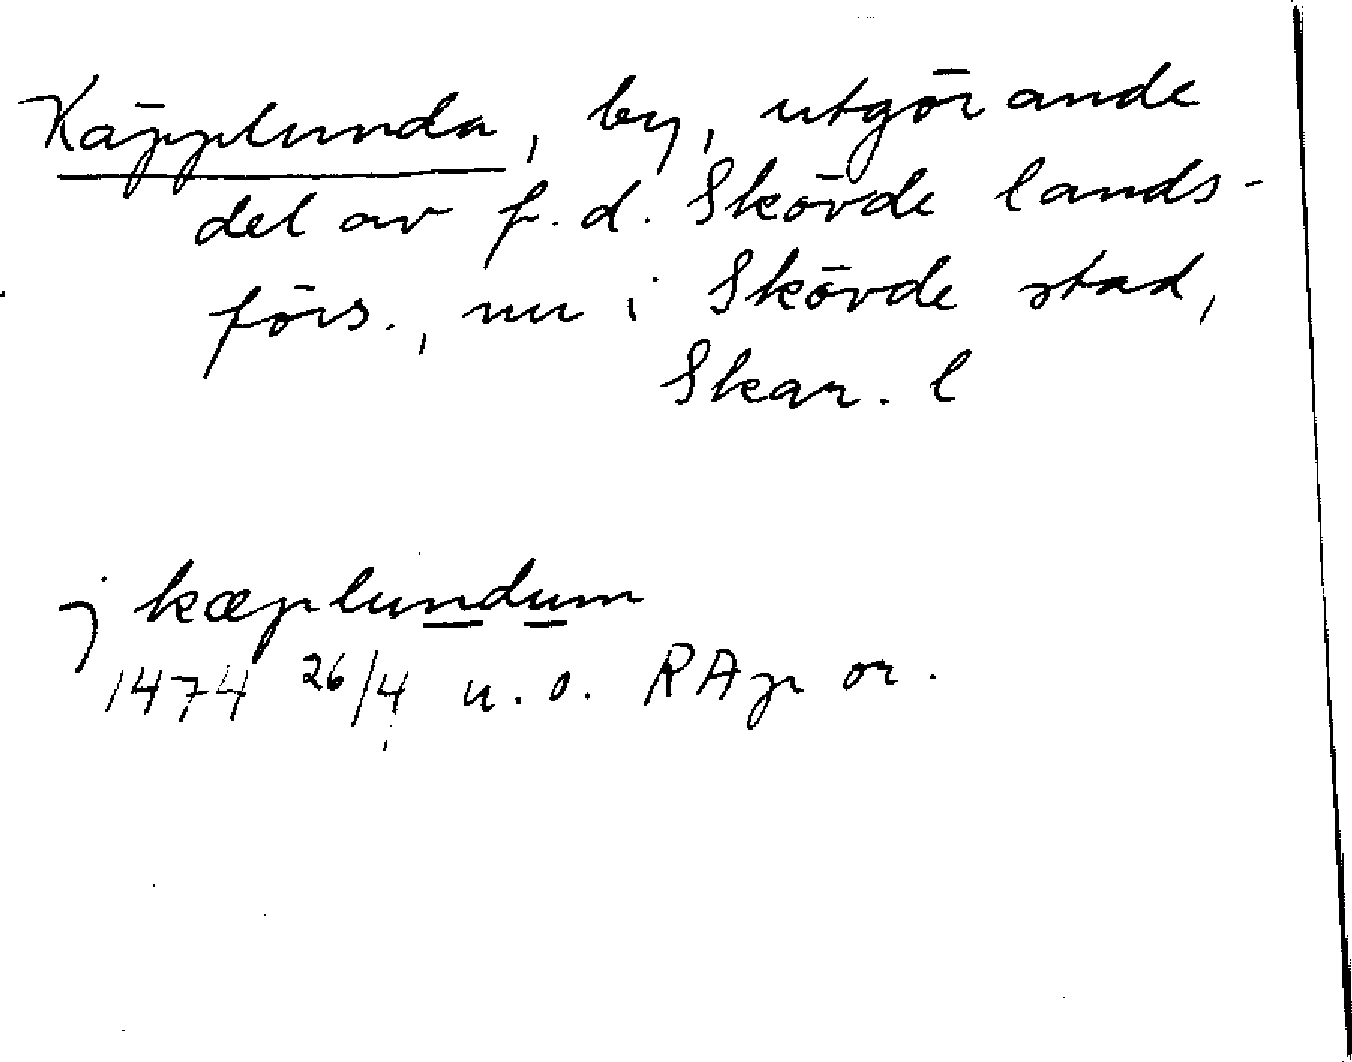 Käpplunda, by, utgörande
del av f.d. Skövde lands-
förs., nu i Skövde stad,
Skar. l
j kæplundum
1474 26/4 u.o. RAp or.